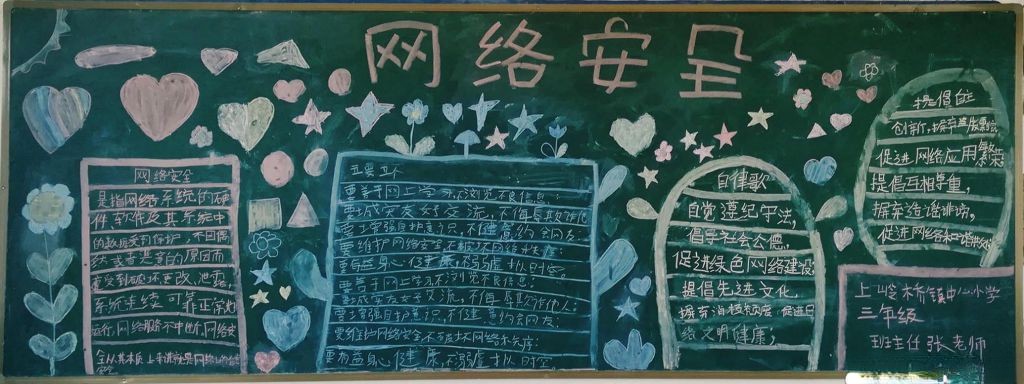 网络安全
网络安全
是指网络系统的硬
件软件及其系统中
的数据受到保护，不因偶
然或者是的原因而
遭受到破坏更改、泄露，
系统连续可靠正常地
运行，网络服务不中断，网络安
全从其本质上来讲就是网络上的
五要五不
要善于网上学习，不浏览不良信息；
要诚实友好交流，不侮辱欺诈他人
要增强自护意识，不随意约会网友；
要维护网络安全，不破坏网络秩序；
要有益身心健康，不沉溺虚拟时空。
要善于网上学习，不浏览不良信息；
要诚实友好交流，不侮辱欺诈他人；
要增强自护意识，不随意约会网友；
要维护网络安全，不破坏网络秩序；
要有益身心健康，不溺虚拟时空。
自律歌
自觉遵纪守法，
倡导社会公德，
促进绿色网络建设；
提倡先进文化，
摒弃消极颓废，促进网
络文明健康；
提倡自主
促进网络应用繁荣
提倡互相尊重，
摒弃造谣诽谤，
促进网络和谐
上岭桥镇中心小学
三年级
班主任张老师